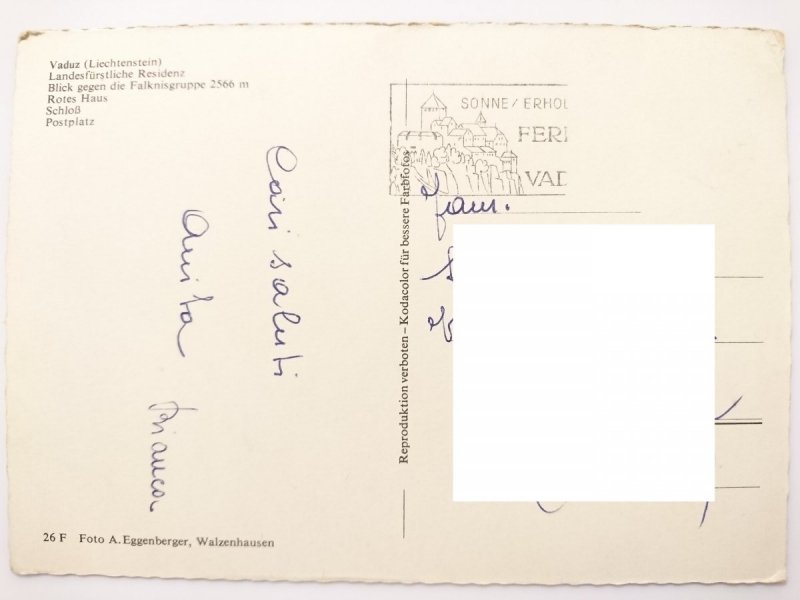 Vaduz (Liechtenstein)
Landesfürstliche Residenz
Blick gegen die Falknisgruppe 2566 m
Rotes Haus
Schloß
Postplatz
Cari saluti
Anita Bianca
26 F Foto A. Eggenberger, Walzenhausen
Reproduktion verboten – Kodacolor für bessere Farbfotos
SONNE / ERHOL
FERI
VAD
Fam.